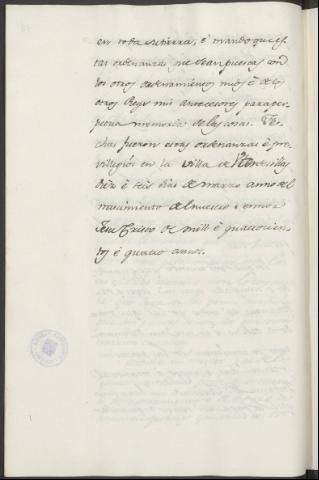 en toda su tierra, é mando que es-
tas ordenanzas me sean puestas con
los otros ordenamientos mios é de los
otros Reyes mis antecesores para per-
petua memoria de las cosas. Fe-
chas fueron estas ordenanzas é pre-
villegios en la villa de
diez é seis dias de marzo anno del
nascimiento del nuestro sennor
Jesu Cristo de mill é quatrocien-
tos é quatro annos.